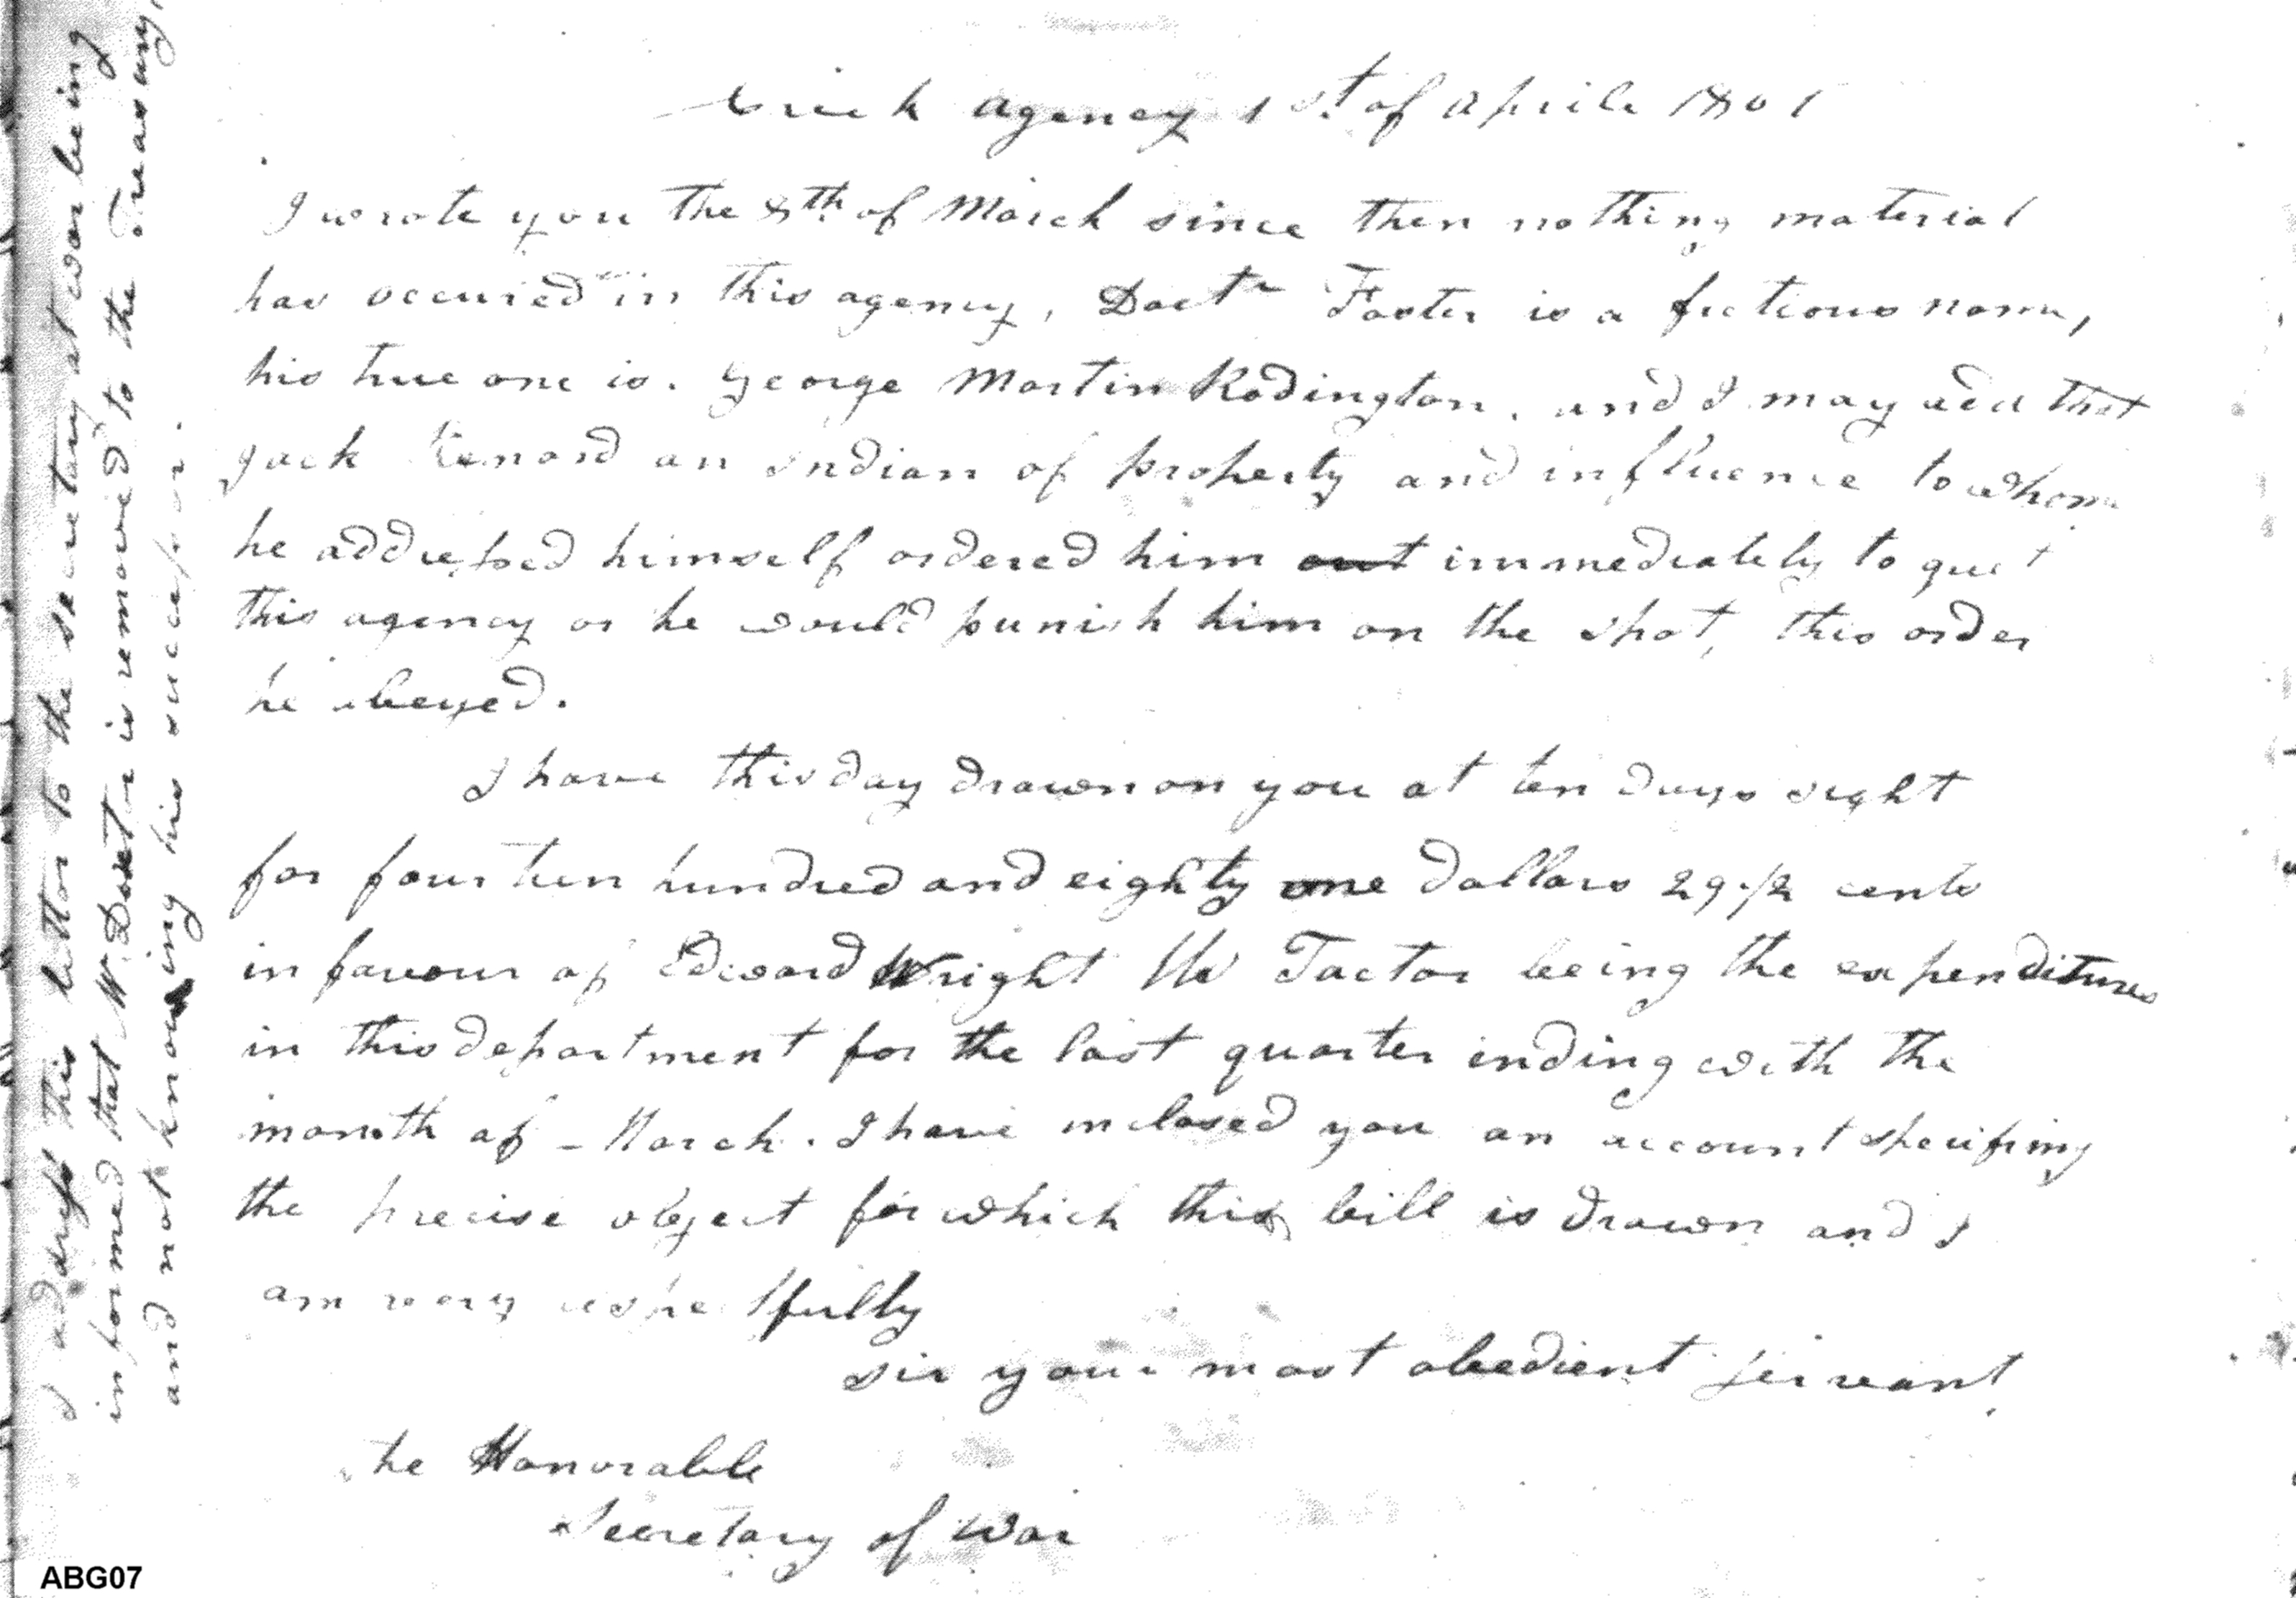 Creek agency 1st. of aprile 1801
I wrote you the 8th of March since then nothing material
has occured in this agency, Doctr Foster is a fictious name,
his true one is. George Martin Rodington, and I may add that
Jack Kenard an indian of property and influence to whom
he addressed himself ordered him out immediately to quit
this agency or he would punish him on the spot, this order
he obeyed.
I have this day drawn on you at ten days sight
for fourteen hundred and eighty one dollars 29 1/2 cents
in favour of Edward Wright US Factor being the expenditures
in this department for the last quarter ending with the
month of - March. I have inclosed you an account specifing
the precise object for which this bill is drawn and I
am very respectfully
sir your most obedient servant
the Honorable
Secretary of War
I address this letter to the secretary at war being
informed that Mr. Dexter is removed to the Treasury,
and not knowing his successor.
ABG07